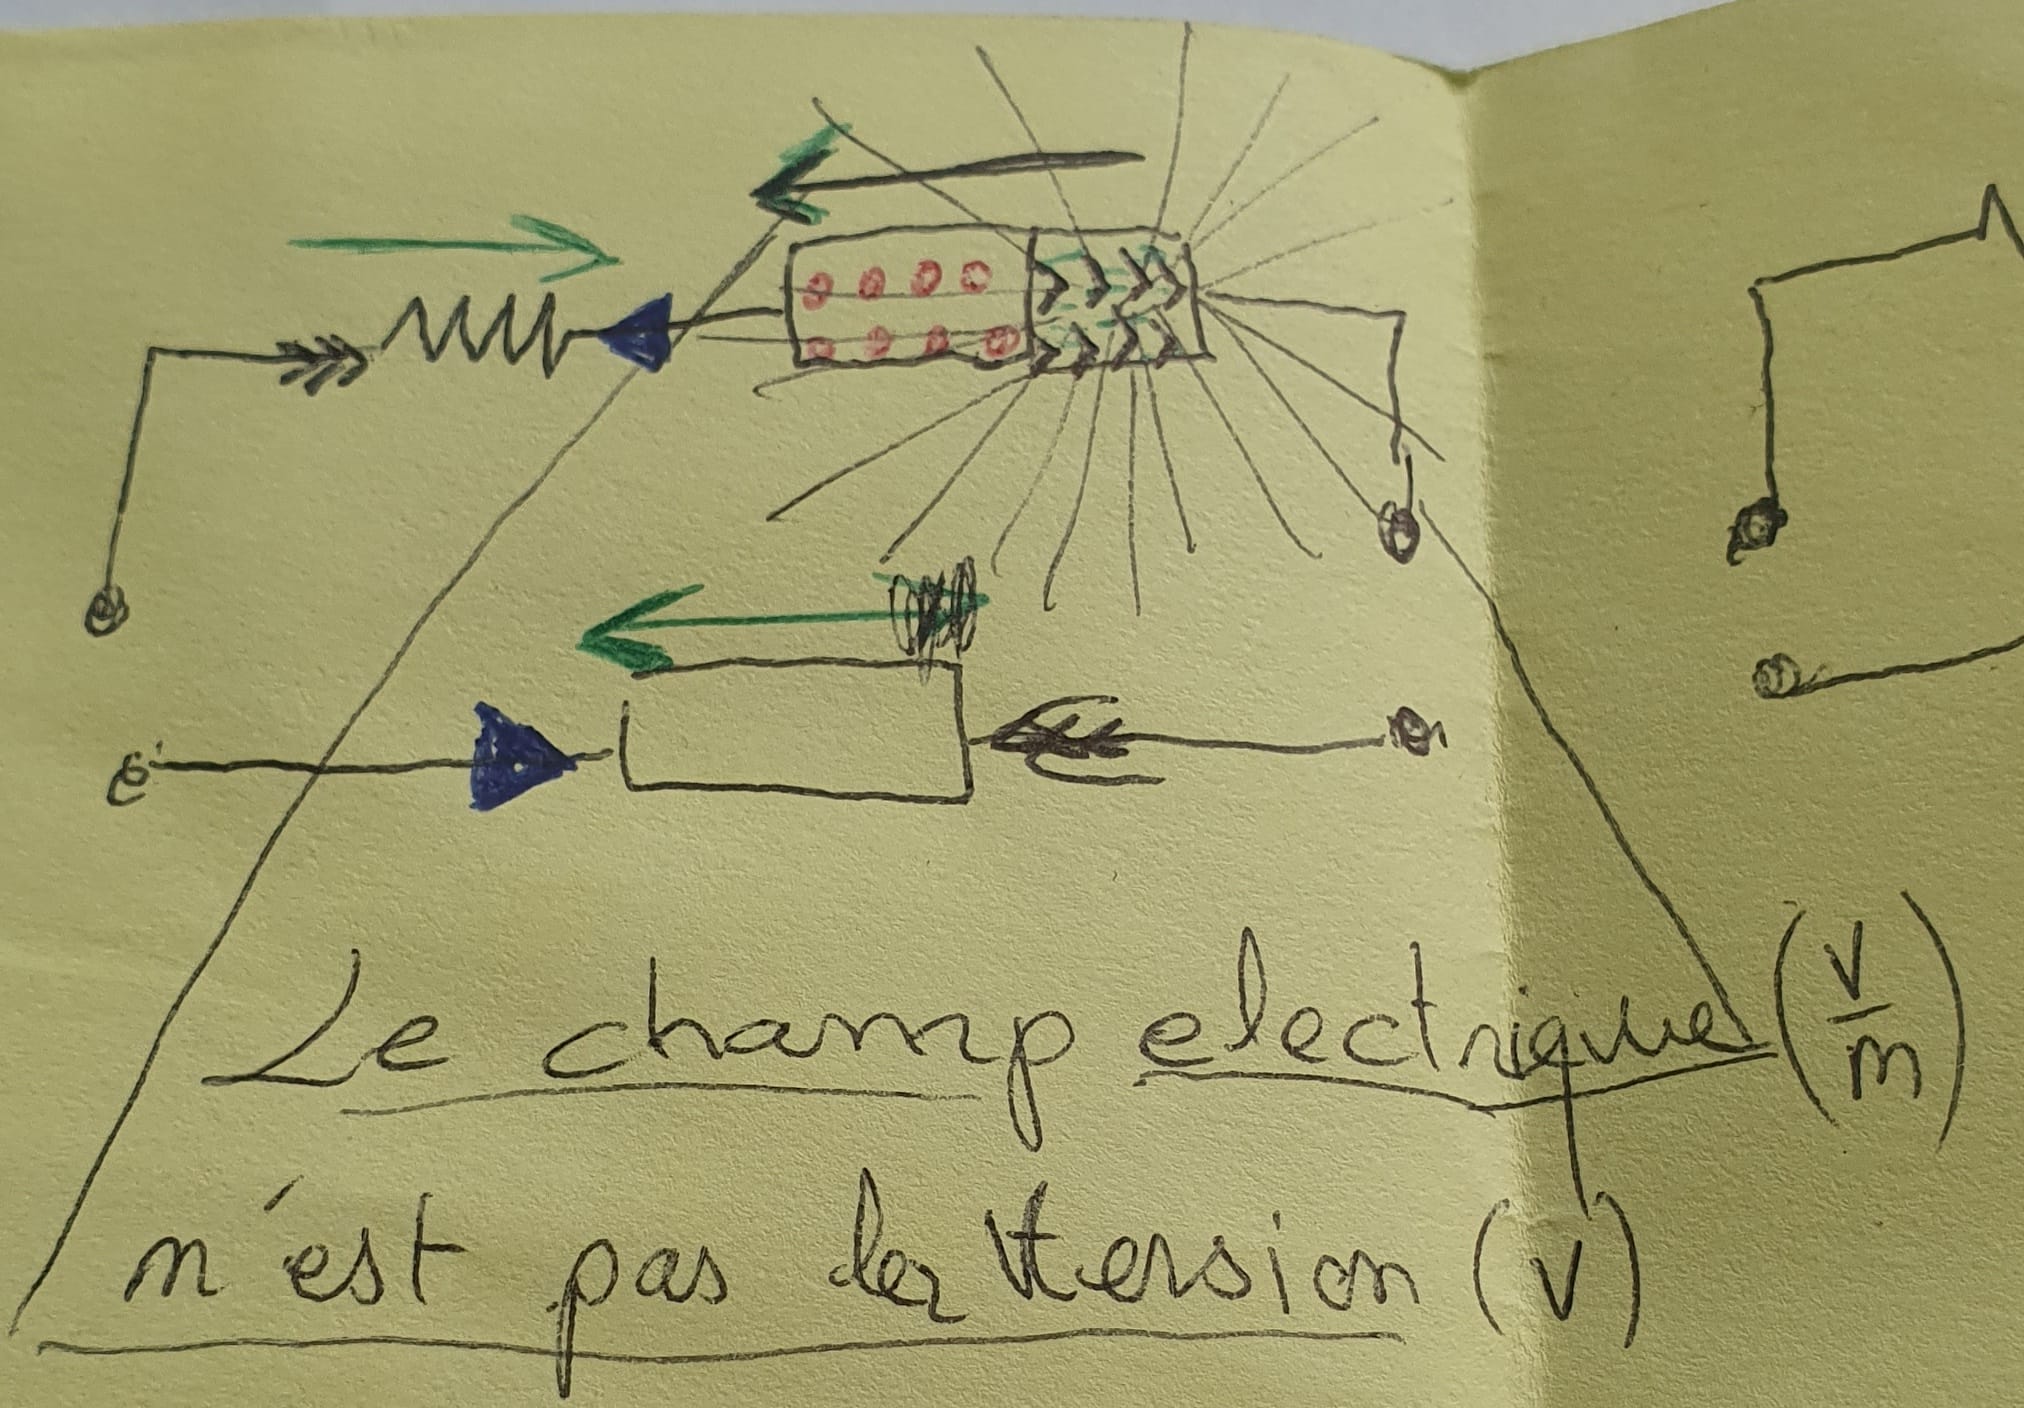 Le champ electrique (V/m)
n'est pas la tension (V)